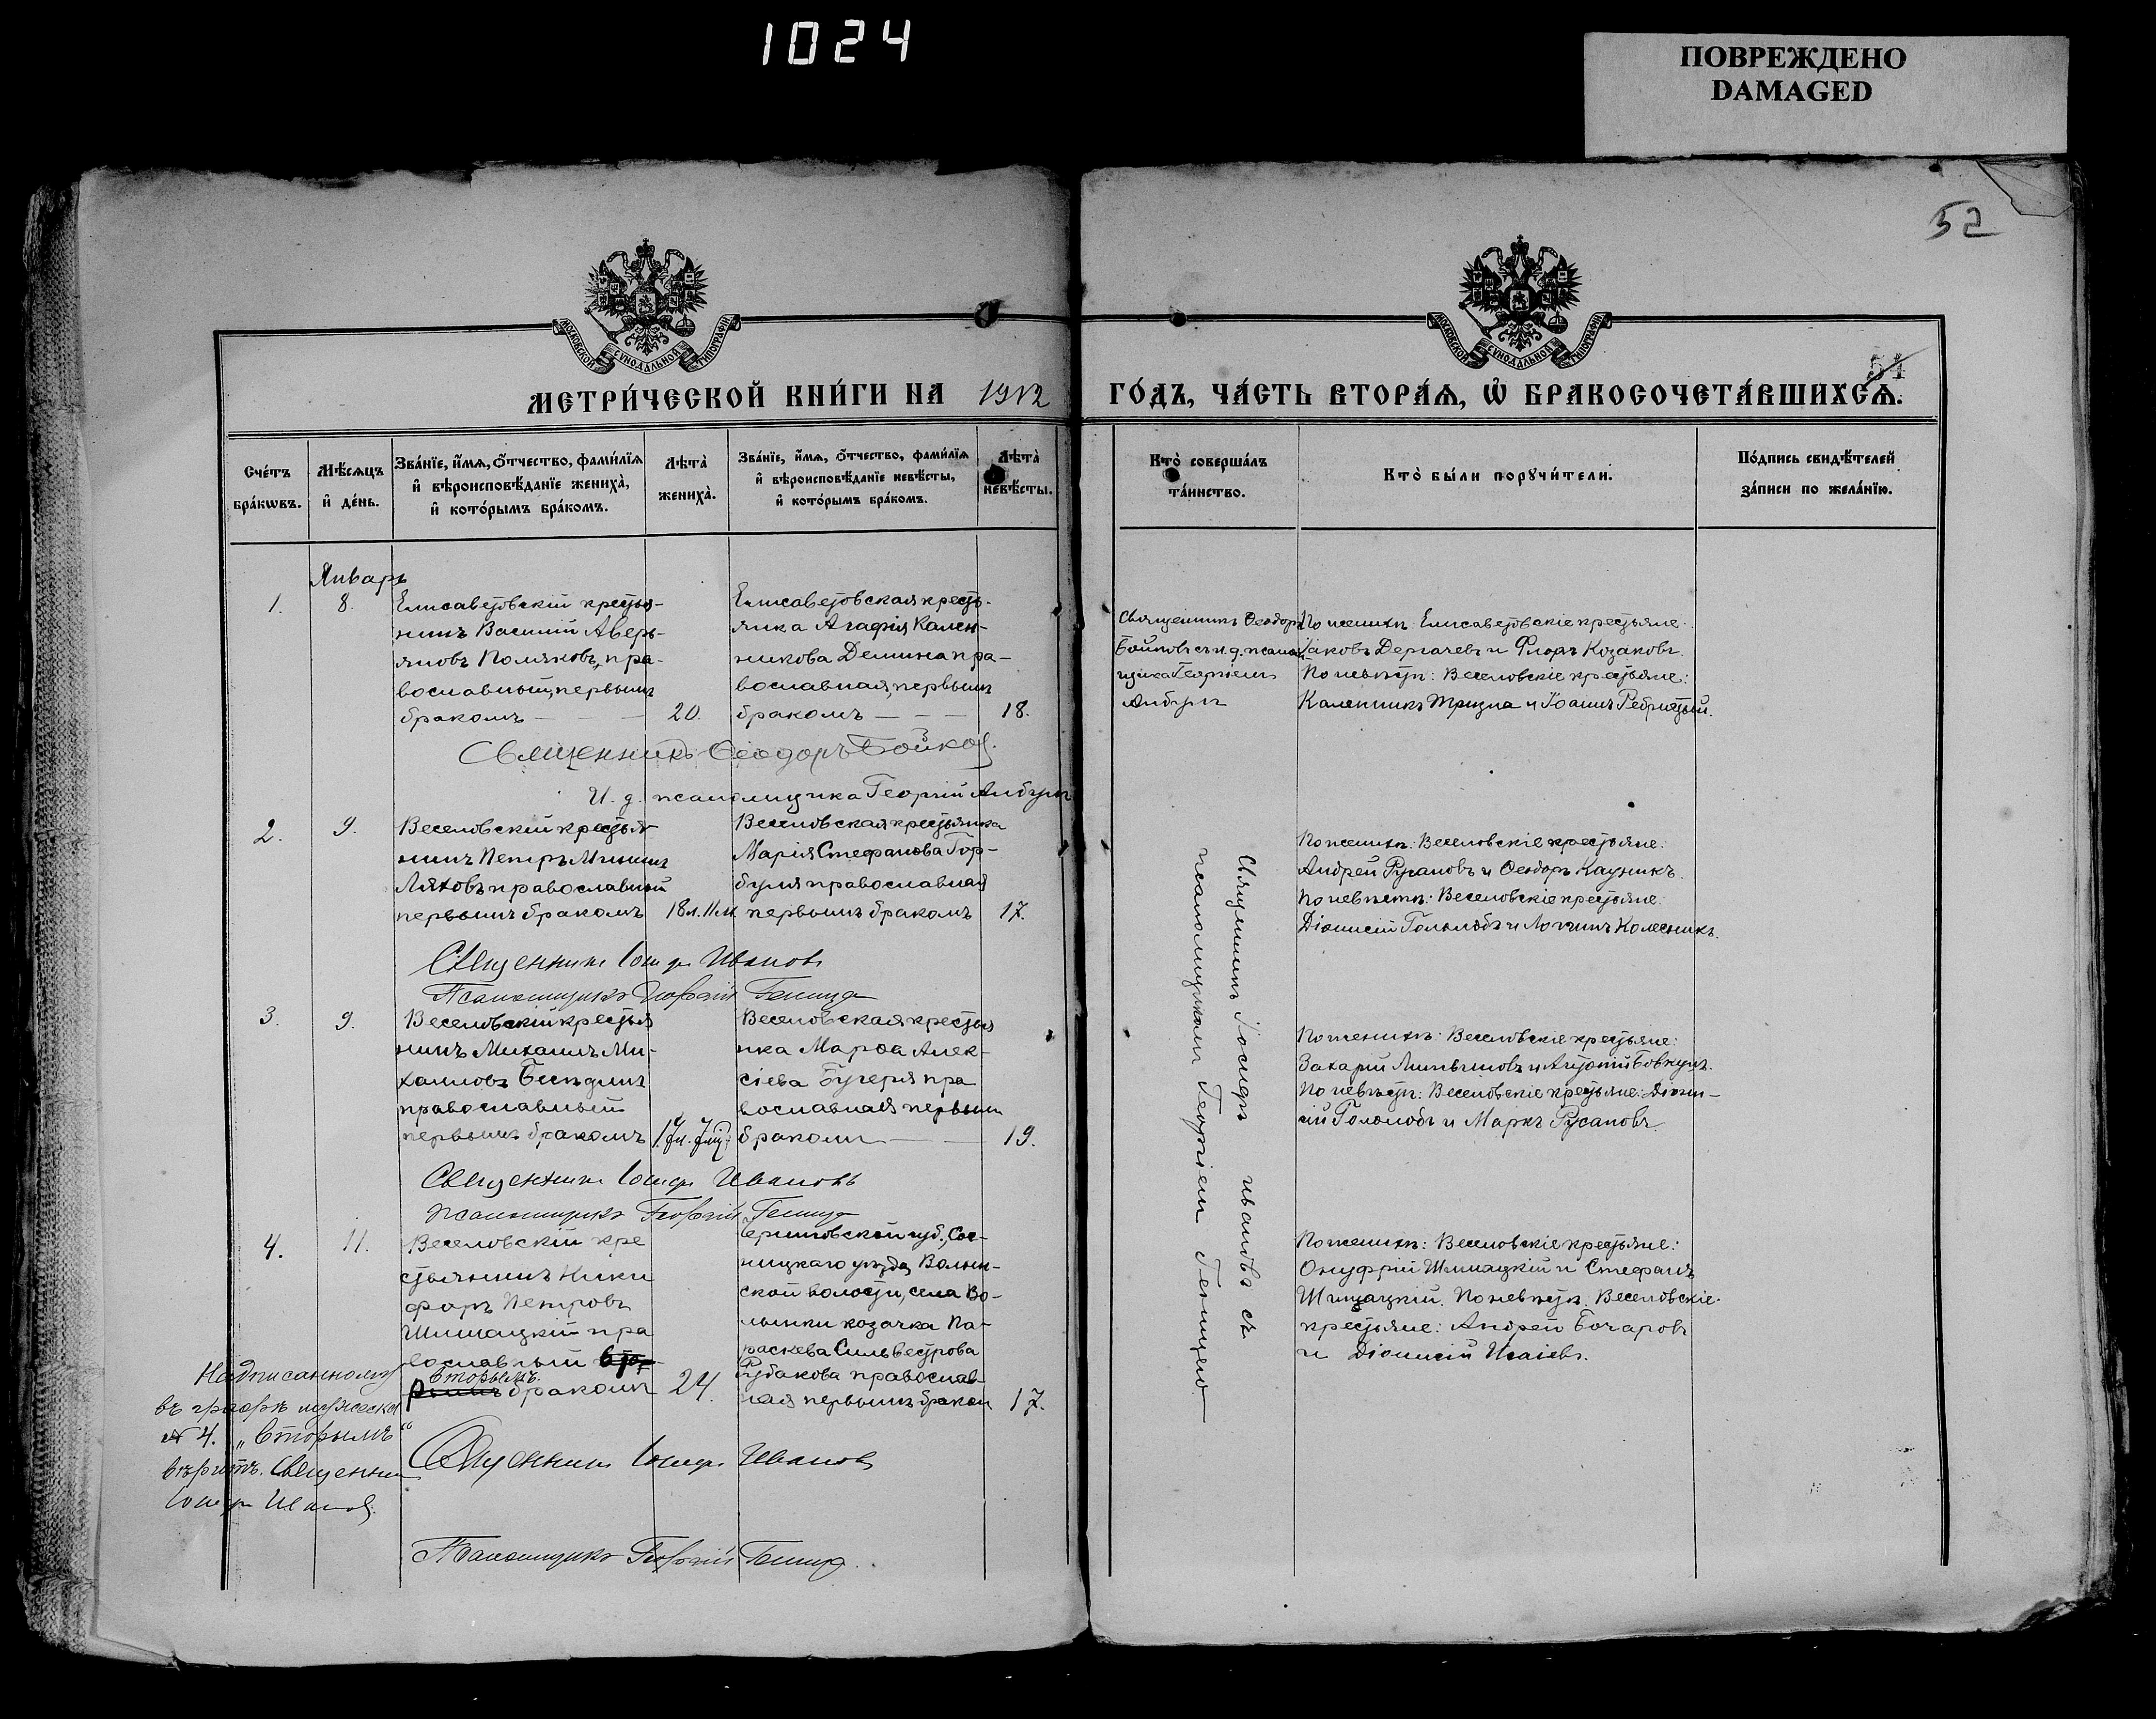 1024
ПОВРЕЖДЕНО
DAMAGED
52
МОСКОВСКОЙ СУНОДАЛЬНОЙ ТИПОГРАФІИ
МОСКОВСКОЙ СУНОДАЛЬНОЙ ТИПОГРАФІИ
54
МЕТРИ́ЧЕСКОЙ КНИ́ГИ НА 1912 ГО́ДЪ, ЧА́СТЬ ВТОРА́Ѧ, Ѽ БРАКОСОЧЕТА́ВШИХСѦ.
Сче́тъ
бра́кѡвъ.
Мѣ́сѧцъ
и҆ де́нь.
Зва́нїе, и҆́мѧ, ѻ҆́тчество, фами́лїѧ
и҆ вѣроисповѣ́данїе жениха̀,
и҆ кото́рымъ бра́комъ.
Лѣта̀
жениха̀.
Зва́нїе, и҆́мѧ, ѻ҆́тчество, фами́лїѧ
и҆ вѣроисповѣ́данїе невѣ́сты,
и҆ кото́рымъ бра́комъ.
Лѣта̀
невѣ́сты.
Кто̀ соверша́лъ
та́инство.
Кто̀ бы́ли порꙋчи́тели.
По́дпись свидѣ́телей
за́писи по жела́нїю.
Январь
1.
8.
Елисаветовскій крестья-
нинъ Василій Аверь-
яновъ Поляковъ, пра-
вославный, первымъ
бракомъ
20.
Елисаветовская кресть-
янка Агафія Кален-
никова Демина пра-
вославная, первымъ
бракомъ
18.
Священникъ Ѳеодоръ
Бойковъ съ и. д. псалом-
щика Георгіемъ
По женихѣ: Елисаветовскіе крестьяне:
Іаковъ Дергачевъ и Флоръ Козаковъ.
По невѣстѣ: Веселовскіе крестьяне:
Каленникъ и Іоаннъ
Священникъ Ѳеодоръ Бойковъ.
И. д. псаломщика Георгій
2.
9.
Веселовскій крестья-
нинъ Петръ Мининъ
Ляховъ православный
первымъ бракомъ
18 л. 11 м.
Веселовская крестьянка
Марія Стефанова Гор-
буля православная
первымъ бракомъ
17.
По женихѣ: Веселовскіе крестьяне:
Андрей Русановъ и Ѳеодоръ
По невѣстѣ: Веселовскіе крестьяне:
Діонисій Гололобъ и Логгинъ Колесникъ.
Священникъ Іосифъ Ивановъ
Псаломщикъ Георгій
3.
9.
Веселовскій крестья
нинъ Михаилъ Ми-
хаиловъ Бесѣдинъ
православный
первымъ бракомъ
Веселовская крестья
нка Марѳа Алек-
сіева Бугеря пра
вославная первымъ
бракомъ
19.
По женихѣ: Веселовскіе крестьяне:
Захарій Литвиновъ и Антоній Бовкунъ.
По невѣстѣ: Веселовскіе крестьяне: Діони-
сій Гололобъ и Маркъ Русановъ.
Священникъ Іосифъ Ивановъ
Псаломщикъ Георгій
4.
11.
Веселовскій кре
стьянинъ Ники
форъ Петровъ
Шишацкій пра
вославный
вторымъ
бракомъ
24.
Черниговской губ., Сос-
ницкаго уѣзда, Волын-
ской волости, села Во-
лынки козачка Па-
раскева Сильвестрова
Рубакова православ-
ная первымъ бракомъ
17.
По женихѣ: Веселовскіе крестьяне:
Онуфрій Шишацкій и Стефанъ
Шишацкій. По невѣстѣ: Веселовскіе
крестьяне: Андрей Бочаровъ
и Діонисій Исаіевъ.
Священникъ Іосифъ Ивановъ съ
псаломщикомъ Георгіемъ
Надписанному
въ графѣ мужеска
№ 4. „Вторымъ“
вѣрить. Священникъ
Іосифъ Ивановъ.
Священникъ Іосифъ Ивановъ
Псаломщикъ Георгій